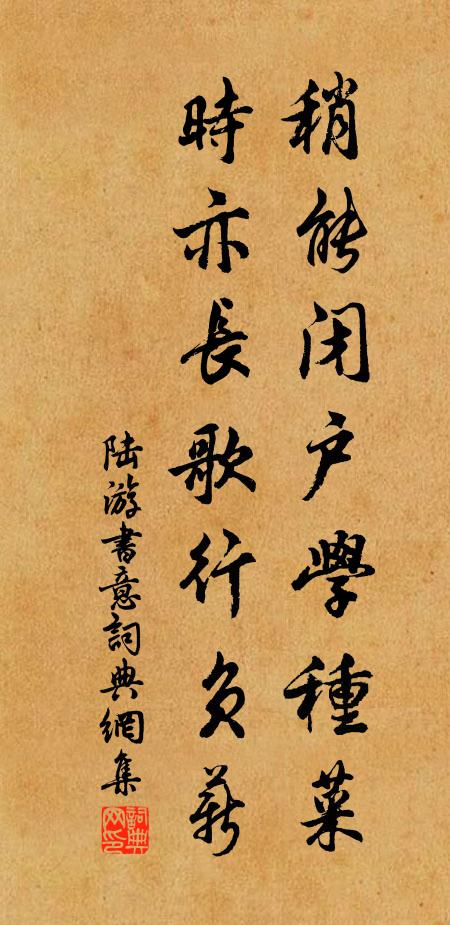 稍能闭户學種菜
時亦長歌行負薪
陆游書意詞典網集
詞典网印